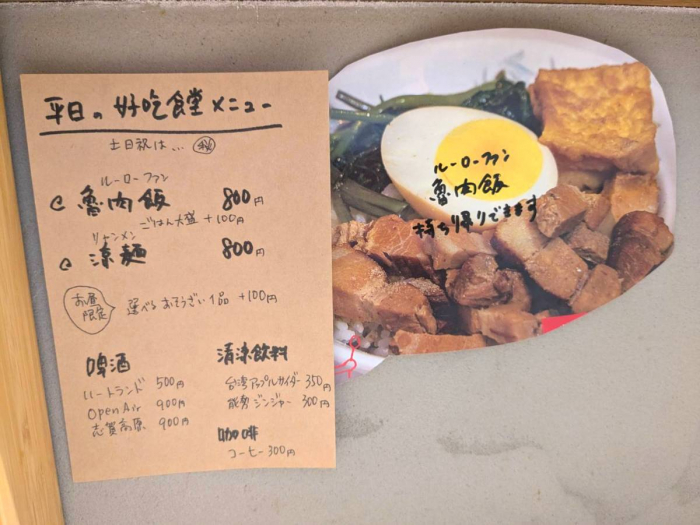 平日の好吃食堂メニュー
土日祝は… 秘
ルーローファン
魯肉飯 800円
ごはん大盛 +100円
リャンメン
涼麺 800円
お昼限定
選べるおそうざい1品 +100円
啤酒
ハートランド 500円
Open Air 900円
志賀高原 900円
清涼飲料
台湾アップルサイダー 350円
能勢ジンジャー 300円
咖啡
コーヒー 300円
ルーローファン
魯肉飯
持ち帰りできます